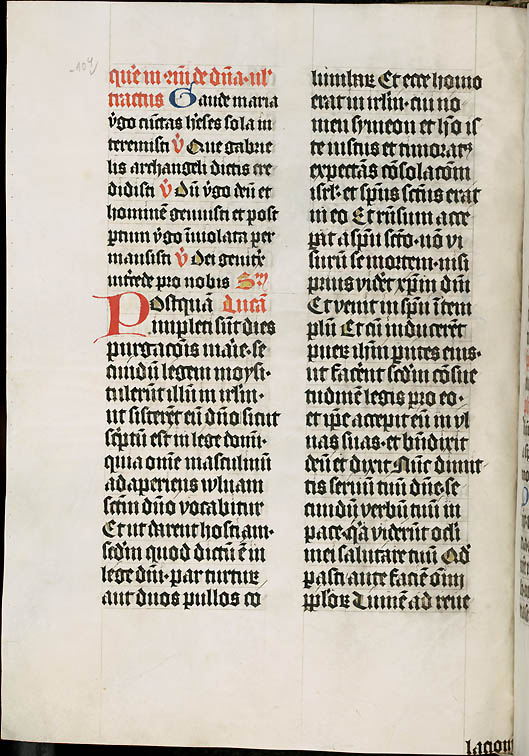 104
que͛ in r̄ııı de dn̄a · ul͛
tractus Gaude maria
v͛go cūctas h̄eses sola in
teremisti V̄ Que gabrie
lis archangeli dictis cre
didisti V̄ Dū v͛go deū et
hominē genuisti et post
ptum v͛go ī̄uiolata per
mansisti V̄ Dei genitͥx
int͛cede pro nobis Sm
Postquā Lucā
impleti sūt dies
purgacōis marie · se
cundū legem moysi ·
tulerūt illū in irl̄m ·
ut sisterēt eū dn̄o sicut
sc͛ptū est in lege domī ·
quia om̄e masculinū
adaperiens wluam
sctm̄ dn̄o vocabitur
Et ut darent hostiam ·
scd̄m quod dictū ē in
lege dn̄i · par turturꝝ
aut duos pullos co
lūmbaꝝ Et ecce homo
erat in irl̄m · cui no
men symeon et hō is
te iustus et timoratꝰ
expectās cōsolacōm
isrl̄ · et sp̄us sctūs erat
in eo Et rn̄sum acce
pat a sp̄u scto · nō vi
surū se mortem · nisi
prius vidēt xp̄m dn̄i
Et venit in sp̄u ī tem
plū Et cū inducerēt
pueꝝ ih̄m pn̄tes eius ·
ut facēnt scd̄m cōsue
tudinē legis pro eo ·
et ip̄e accepit eū in vl
nas suas · et bn̄dixit
deū et dixit Nūc dimit
tis seruū tuū dn̄e · se
cundū verbū tuū in
pace · q̄a viderūt ocli
mei salutare tuū Qd̄
pasti ante faciē om̄i
pp̄loꝝ Lumē ad reue
lagom